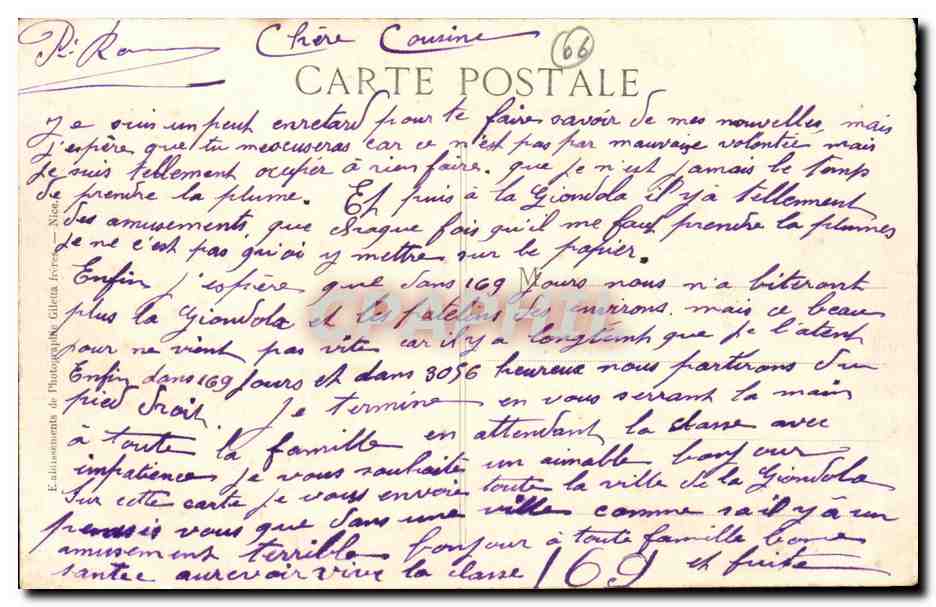 Chère Cousine
66
CARTE POSTALE
Je suis un peut enretard pour te faire savoir de mes nouvelles, mais
j'espère que tu mescuseras car ce n'est pas par mauvaise volontée mais
je suis tellement occupér à rien faire. que je n'est jamais le temps
de prendre la plume. Et puis à la Giandola il yà tellement
des amusements, que chaque fois qu'il me faut prendre la plumes
je ne c'est pas qui oi y mettre sur le papier.
Enfin j'espère que dans 169 Jours nous n'a biteront
plus la Giandola et les patelins des environs. mais ce beau
jour ne vient pas vite car il y a longtemp que je l'atent
Enfin dans 169 Jours et dans 3056 heureux nous partirons du
pied droit. Je termine en vous serrant la main
à toute la famille en attendant la classe avec
impatience je vous souhaite un aimable bonjour
Sur cette carte je vous envoie toute la ville de la Giandola
vous que dans une ville comme sa il yà un
amusement terrible bonjour à toute famille bonne
santée aurevoir vive la classe 169 et fuite
Etablissements de Photographie Giletta frères — Nice
CPAPHIL